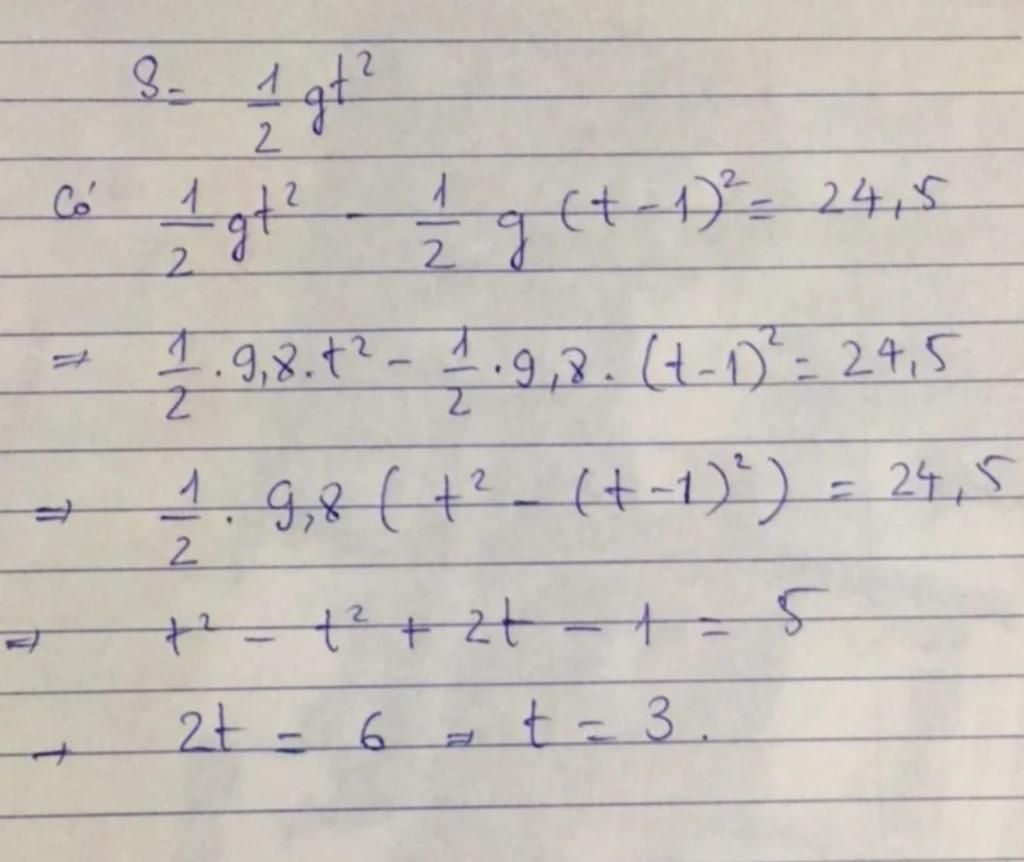 S = 1/2 gt²
Có 1/2 gt² - 1/2 g (t-1)² = 24,5
⇒ 1/2 . 9,8 . t² - 1/2 . 9,8 . (t-1)² = 24,5
⇒ 1/2 . 9,8 ( t² - (t-1)² ) = 24,5
⇒ t² - t² + 2t - 1 = 5
→ 2t = 6 ⇒ t = 3 .